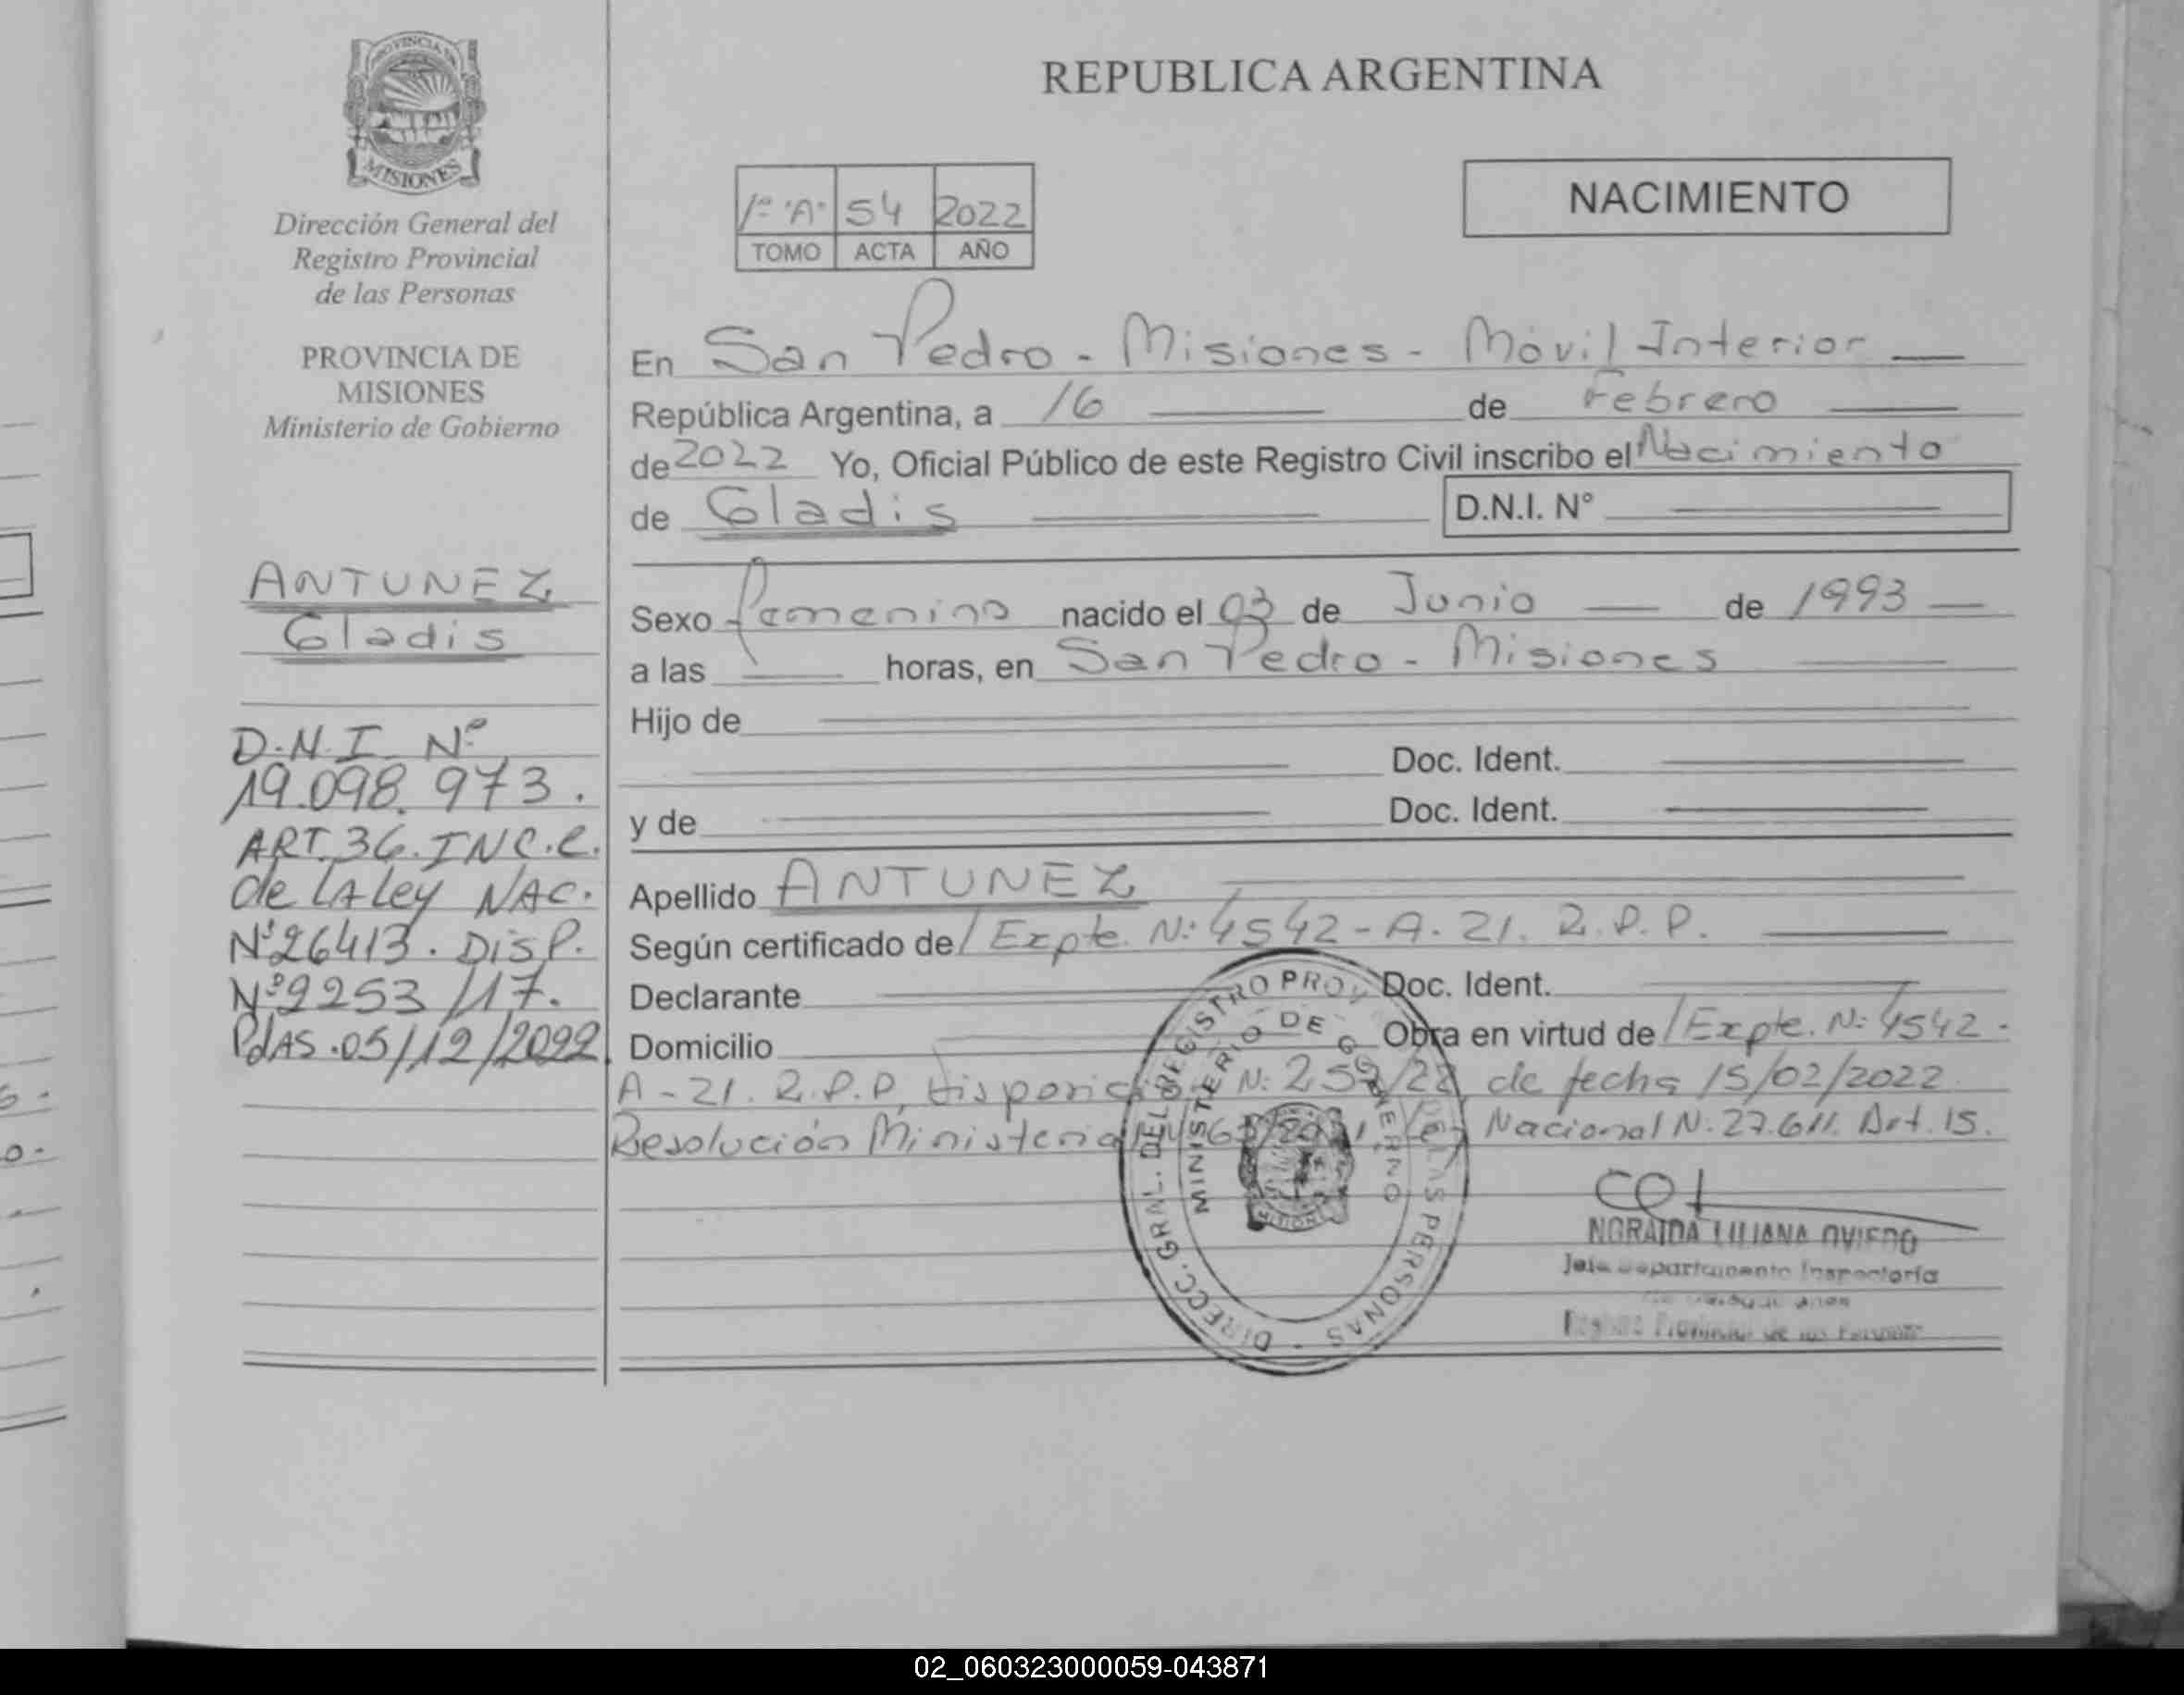 PROVINCIA DE
MISIONES
Dirección General del
Registro Provincial
de las Personas
PROVINCIA DE
MISIONES
Ministerio de Gobierno
ANTUNEZ
Gladis
D.N.I. Nº
19.098.973.
ART. 36. INC. C.
de LA Ley NAC.
Nº 26413. DISP.
Nº 2253/17.
PdAS. 05/12/2022
REPUBLICA ARGENTINA
1º "A" 54 2022
TOMO ACTA AÑO
NACIMIENTO
En San Pedro - Misiones - Movil Interior
República Argentina, a 16 de Febrero
de 2022 Yo, Oficial Público de este Registro Civil inscribo el Nacimiento
de Gladis D.N.I. N°
Sexo femenino nacido el 03 de Junio de 1993
a las horas, en San Pedro - Misiones
Hijo de
Doc. Ident.
y de Doc. Ident.
Apellido ANTUNEZ
Según certificado de Expte. Nº 4542-A-21. R.P.P.
Declarante Doc. Ident.
Domicilio Obra en virtud de Expte. Nº 4542-
A-21. R.P.P, Disposición Nº 259/22, de fecha 15/02/2022
Resolución Ministerial Ley Nacional Nº 27.611. Art. 15.
DIRECC. GRAL. DEL REGISTRO PROV. DE LAS PERSONAS
MINISTERIO DE GOBIERNO
MISIONES
NORAIDA LILIANA OVIEDO
Jefe Departamento Inspectoría
Registro Provincial de las Personas
02_060323000059-043871